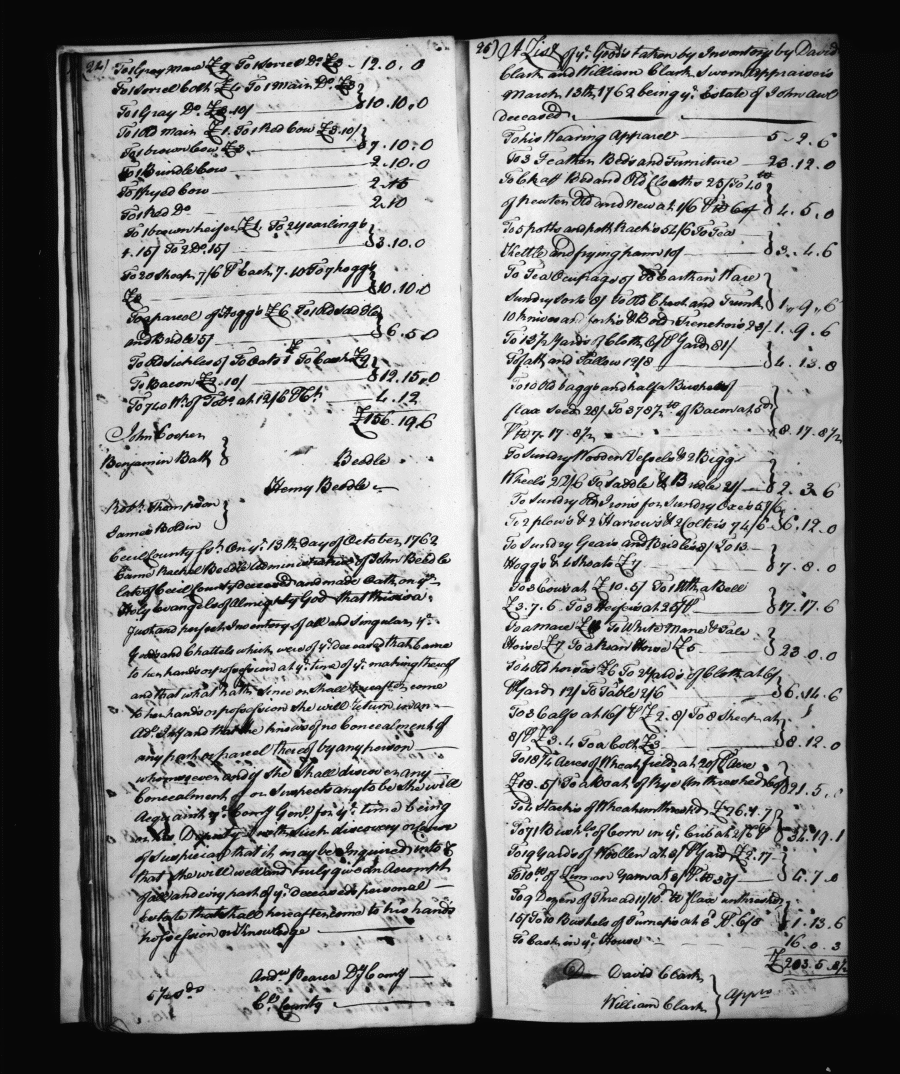 24)
To 1 Gray Mare £9 To 1 Sorrel Do £3 12.0.0
To 1 Sorrel Colt £4 To 1 Main Do £3
To 1 Gray Do £3.10/ 10.10.0
To 1 Old Main £1. To 1 Red Cow £3.10/
To 1 brown Cow £3 7.10.0
To 1 Brindle Cow 2.10.0
To 1 Pyed Cow 2.15
To 1 Red Do 2.10
To 1 brown heifer £1. To 2 Yearlings
1.15/ To 2 Do. 15/ 3.10.0
To 20 Sheep, 7/6 Pr Each, 7.10 To 7 hoggs
£3 10.10.0
To a parcel of Hoggs £6 To 1 Old Saddle
and Bridle 5/ 6.5.0
To Old Sickles 5/ To Oats 1£ To Cash £9
To Bacon £2.10/ 12.15.0
To 740 Wt. of Tobo. at 12/6 Pr Ct. 4.12
£156.19.6
John Cooper
Benjamin Bath Beedle
Henry Beedle
Robt. Thompson
James Boldin
Cecil County Sct. On ye. 13th. day of October, 1762
Came Rachel Beedle Administratrix of John Beedle
late of Cecil County deceased and made Oath, on ye.
Holy Evangels of Almighty God that this is a
Just and perfect Inventory of all and singular, ye.
Goods and Chattels which were of ye. deceased that Came
to her hands or possession at ye. time of ye. making thereof
and that what hath since or shall hereafter come
to her hands or possession she will return in an
Adl. Inty and that she knows of no Concealment of
any part or parcel thereof by any person
whomsoever and if she Shall discover any
Concealment of or Suspects any to be she will
Acquaint ye. Comy Genl. for ye. time being
or his Deputy with such discovery or Cause
of Suspicion that it may be Inquired into &
that she will well and truly give an Accompt
of all and every part of ye. deceaseds personal
Estate that shall hereafter come to his hands
possession or knowledge
Andw. Pearce Dy Comy
Cl. County
25) A List of ye. Goods taken by Inventory by David
Clark and William Clark Sworn Appraisers
March, 13th, 1762 being ye. Estate of John Awl
deceased
To his Wearing Apparel 5.2.6
To 3 Feather Beds and Furniture 23.12.0
To Chaff Bed and Old Cloaths 25/ To 40 lb
of pewter Old and New at 1/6 Pr lb 4.5.0
To 5 potts and pott Racks 54/6 To Tea
Kettle and frying pann 10/ 3.4.6
To Tea Equipage of Earthen Ware
Sundry Sorts 5/ to Old Chest and Trunk 1.9.6
10 knives and forks & Bed Trenchers 23/ 1.9.6
To 13½ Yards of Cloth 6/ Pr Yard 81/
To fatt and Tallow 12/8 4.13.8
To 10 Old baggs and half a Bushel of
flax Seed 28/ To 378½ lb of Bacon at 5d
Pr lb 7.17.8½ 8.17.8½
To Sundry Wooden Vessels & 2 Bigg
Wheels 22/6 To Saddle & Bridle 21/ 2.3.6
To Sundry Old Irons for Sundry Uses 57/6
To 2 plows & 2 Harrows & 2 Colters 74/6 6.12.0
To Sundry Gears and Bridles 8/ To 13
Hoggs & 4 Shoats £7 7.8.0
To 3 Cows at £10.5/ To 1 With a Bell
£3.7.6. To 3 Heifers at 25/ Pr 17.17.6
To a Mare £11 To White Mare & Fale
Horse £7 To a Roan Horse £5 23.0.0
To 4 Old horses £6 To 2 Yards of Cloth at 6/
Pr Yard 12/ To Table 2/6 6.14.6
To 3 Calfs at 16/ Pr £2.8/ To 8 Sheep at
8/ Pr £3.4 To a Colt £3 8.12.0
To 18¼ Acres of Wheat field at 20/ Pr Acre
£18.5/ To a Loat of Rye Unthreshed 60/ 21.5.0
To 2 Stacks of Wheat unthreshd. £26.4.7
To 71 Bushls of Corn in ye. Crib at 2/6 Pr 34.19.1
To 19 Yards of Woollen at 3/ Pr Yard £2.17
To 10 lb. of Linnan Yarn at 3/ Pr lb 30/ 4.7.0
To 9 Dozen of Thread 11/10. To Flax unthreshed
15/ To 10 Bushels of Turnips at 8d Pr. 6/8 1.13.6
To Cash in ye. House 16.0.3
£203.5.8½
David Clark
William Clark Apprs